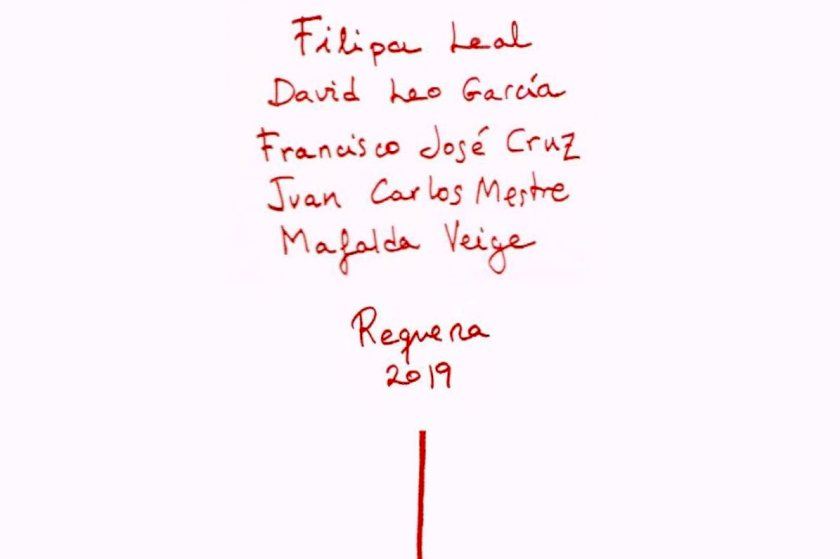 Filipa Leal
David Leo García
Francisco José Cruz
Juan Carlos Mestre
Mafalda Veiga
Requena
2019